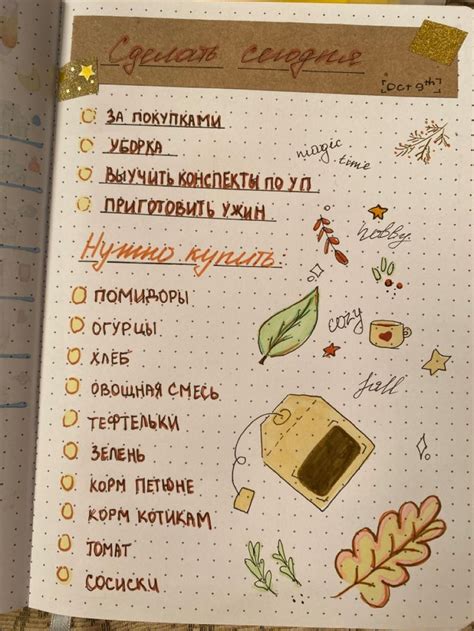 Сделать сегодня
ЗА ПОКУПКАМИ
УБОРКА
ВЫУЧИТЬ КОНСПЕКТЫ ПО УП
ПРИГОТОВИТЬ УЖИН
magic
time
hobby
Нужно купить:
ПОМИДОРЫ
ОГУРЦЫ
ХЛЕБ
ОВОЩНАЯ СМЕСЬ
ТЕФТЕЛЬКИ
ЗЕЛЕНЬ
КОРМ ПЕТЮНЕ
КОРМ КОТИКАМ
ТОМАТ
СОСИСКИ
cozy
fall